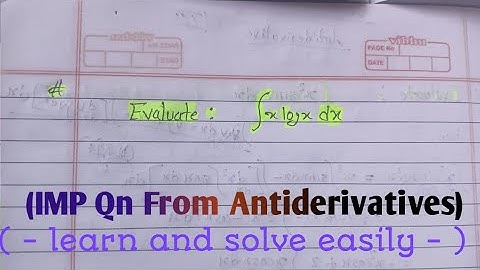 PAGE No
DATE
#
Evaluate : ∫x logx dx
(IMP Qn From Antiderivatives)
( - learn and solve easily - )